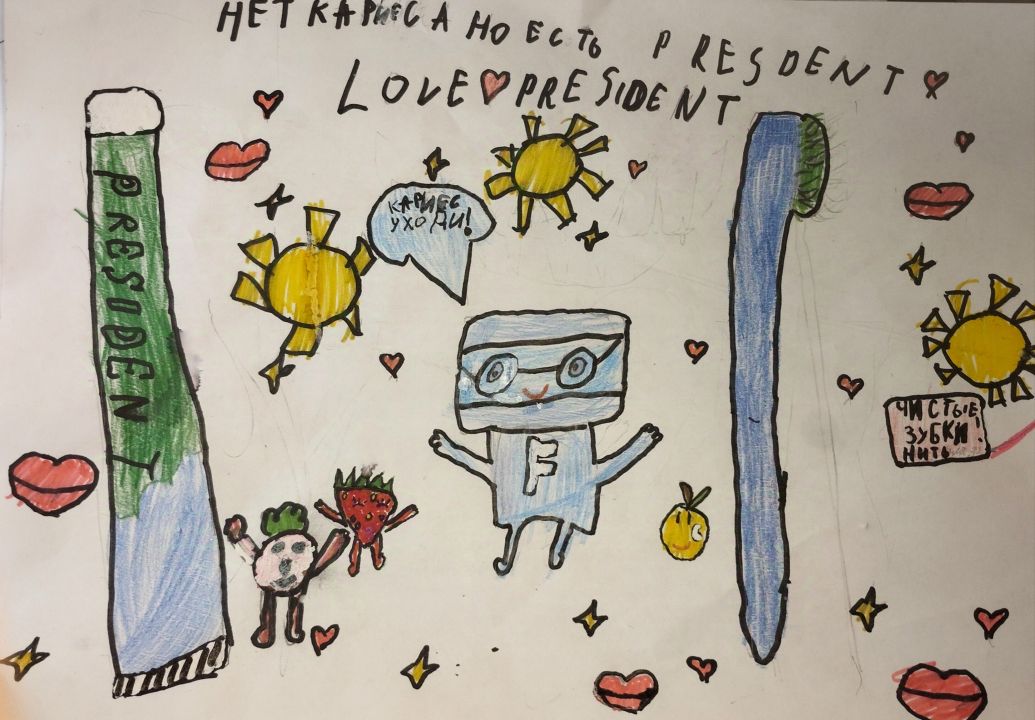 НЕТ КАРИЕСА НО ЕСТЬ PRESDENT
LOVE PRESIDENT
PRESIDENT
КАРИЕС
УХОДИ!
F
ЧИСТЫЕ
ЗУБКИ!
НИТЬ